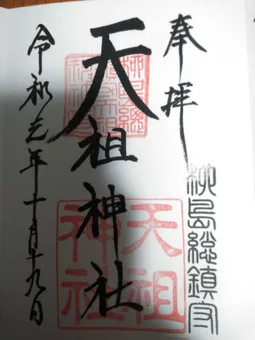 奉拝
柳島総鎮守
天祖神社
令和元年十一月十九日
天祖神社